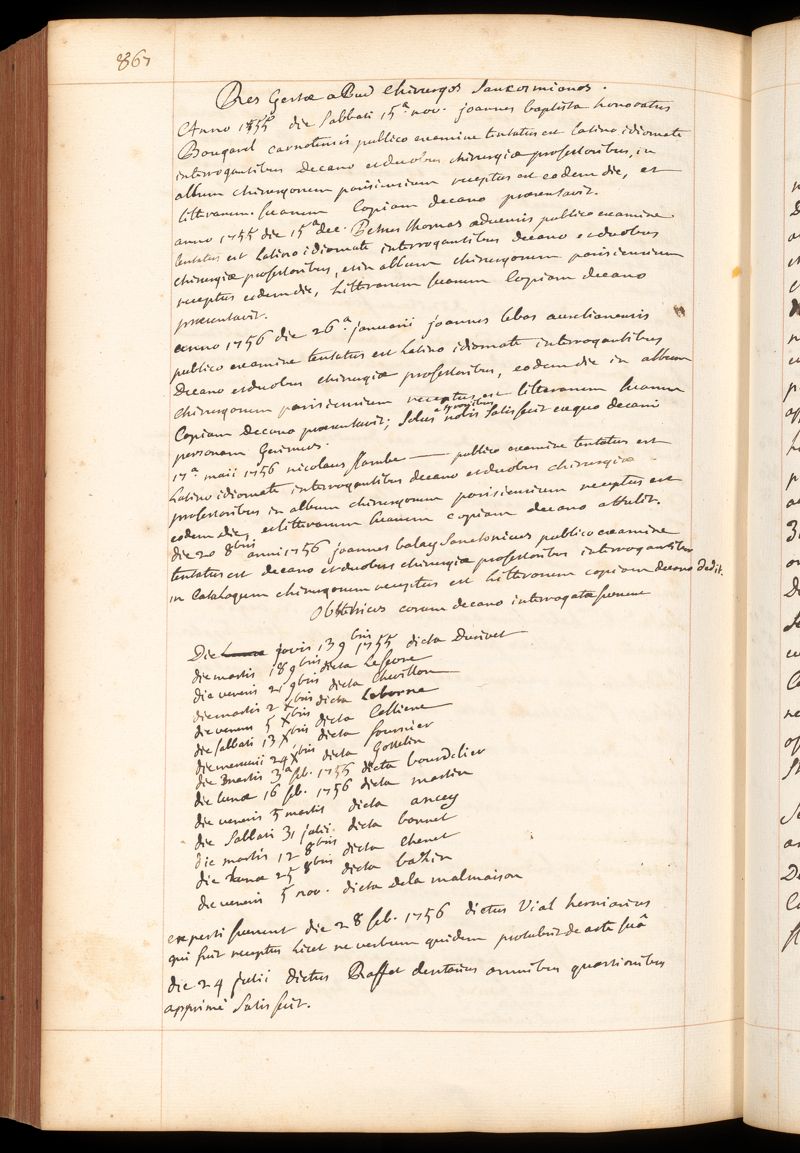 867
Res Gestæ apud chirurgos Sancosmianos.
Anno 1755 die Sabbati 15a nov. joannes baptista honoratus
Bougarel carnotensis publico examine tentatus est latino idiomate
interrogantibus decano et duobus chirurgiæ professoribus, in
album chirurgorum parisiensium receptus est eodem die, et
litterarum suarum Copiam decano præsentavit.
anno 1755 die 15a dec. Petrus thomas publico examine
tentatus est Latino idiomate interrogantibus decano et duobus
chirurgiæ professoribus, et in album chirurgorum parisiensium
receptus eodem die, litterarum suarum Copiam decano
præsentavit.
anno 1756 die 26a januarii joannes lebas aurelianensis
publico examine tentatus est Latino idiomate interrogantibus
Decano et duobus chirurgiæ professoribus, eodem die in album
chirurgorum parisiensium receptus est litterarum suarum
Copiam decano præsentavit; Solus a tyronibus nobis Satisfecit ex quo decani
personam Gerimus.
17a maii 1756 nicolaus flambe — publico examine tentatus est
Latino idiomate interrogantibus decano et duobus chirurgiæ
professoribus in album chirurgorum parisiensium receptus est
eodem die, et litterarum suarum copiam decano attulit.
die 20 8bris anni 1756 joannes balay Sanctonicus publico examine
tentatus est decano et duobus chirurgiæ professoribus interrogantibus
in Catalogum chirurgorum receptus est litterarum copiam decano dedit.
Obstetrices coram decano interrogatæ fuerunt
Die jovis 13 9bris 1755 dicta Durivet
die martis 18 9bris dicta Lefevre
die veneris 21 9bris dicta Chevillon
die martis 2 Xbris dicta Leborne
die veneris 5 Xbris dicta Celliene
die Sabbati 13 Xbris dicta fournier
die mercurii 24 Xbris dicta Gosselin
die martis 3a feb. 1756 dicta bourdelier
die lunæ 16 feb. 1756 dicta martin
die veneris 5 martis dicta ancey
die Sabbati 31 julii. dicta bonnet
die martis 12 8bris dicta Chenet
die Lunæ 25 8bris dicta bazin
die veneris 5 nov. dicta dela malmaison
experti fuerunt die 28 feb. 1756 dictus Vial herniarius
qui fuit receptus licet ne verbum quidem protulerit de arte suâ
die 24 julii dictus Raffet dentarius omnibus quæstionibus
apprimè Satisfecit.